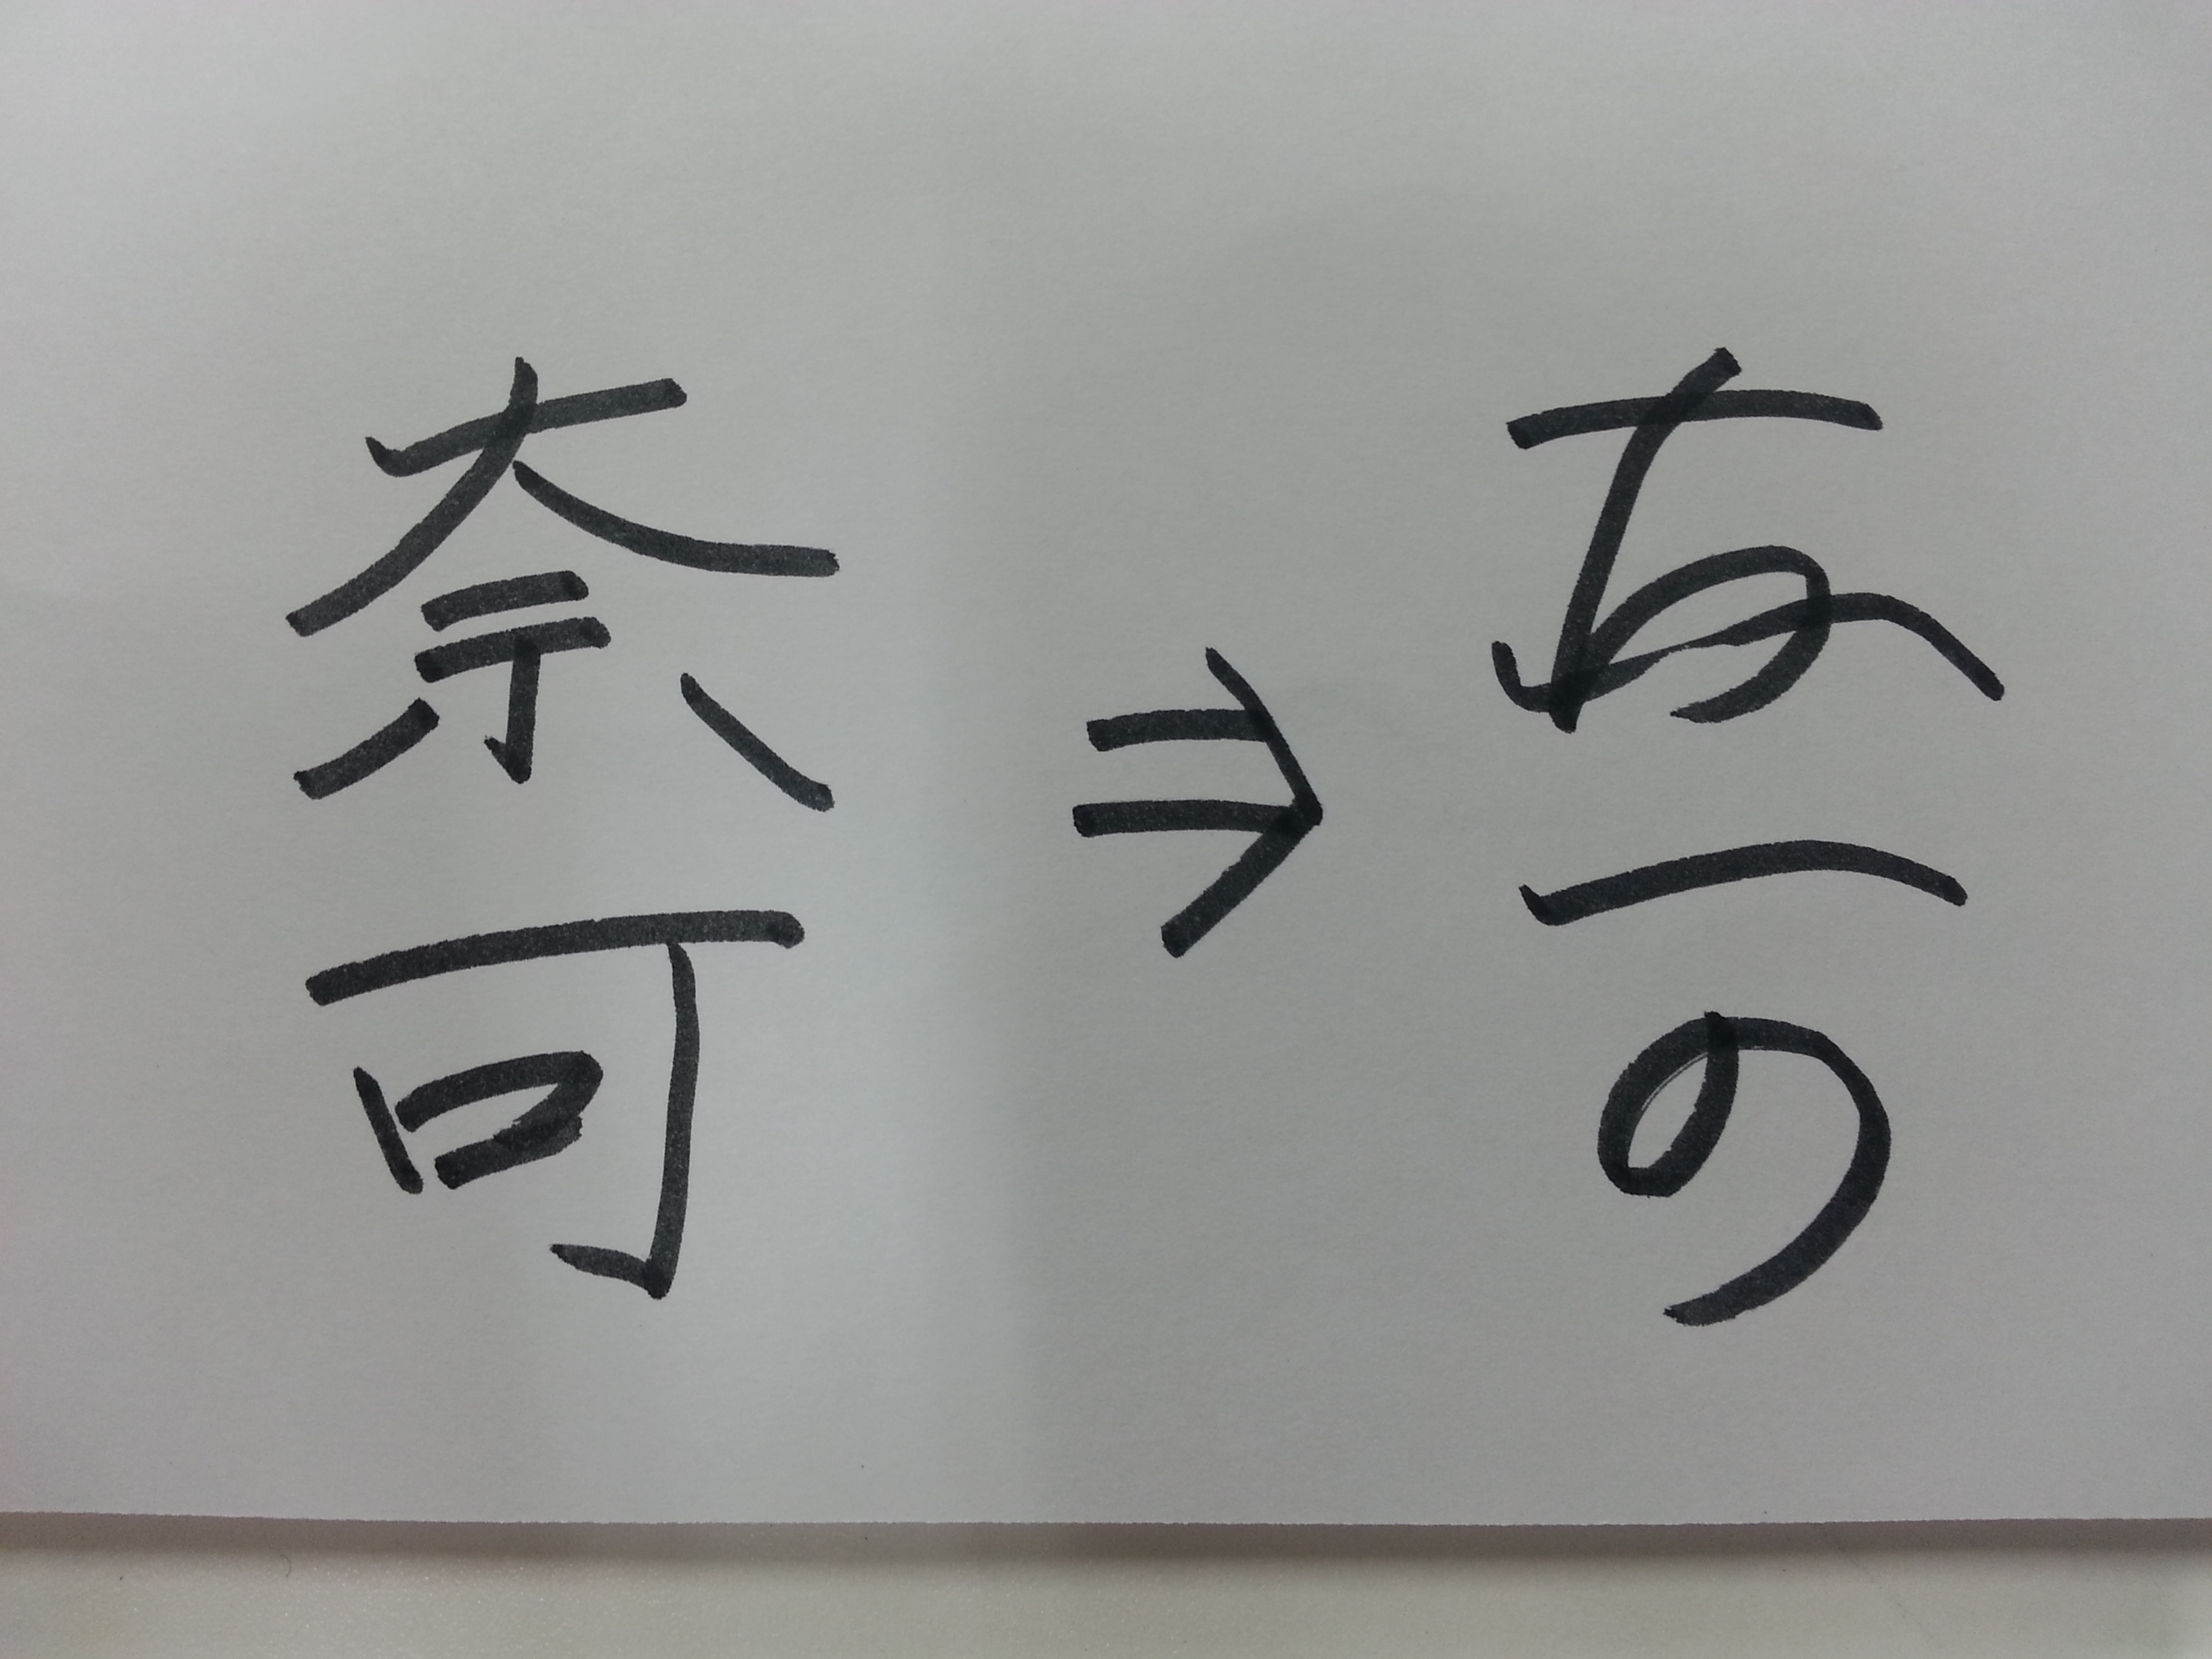 奈可
⇒
あ一の